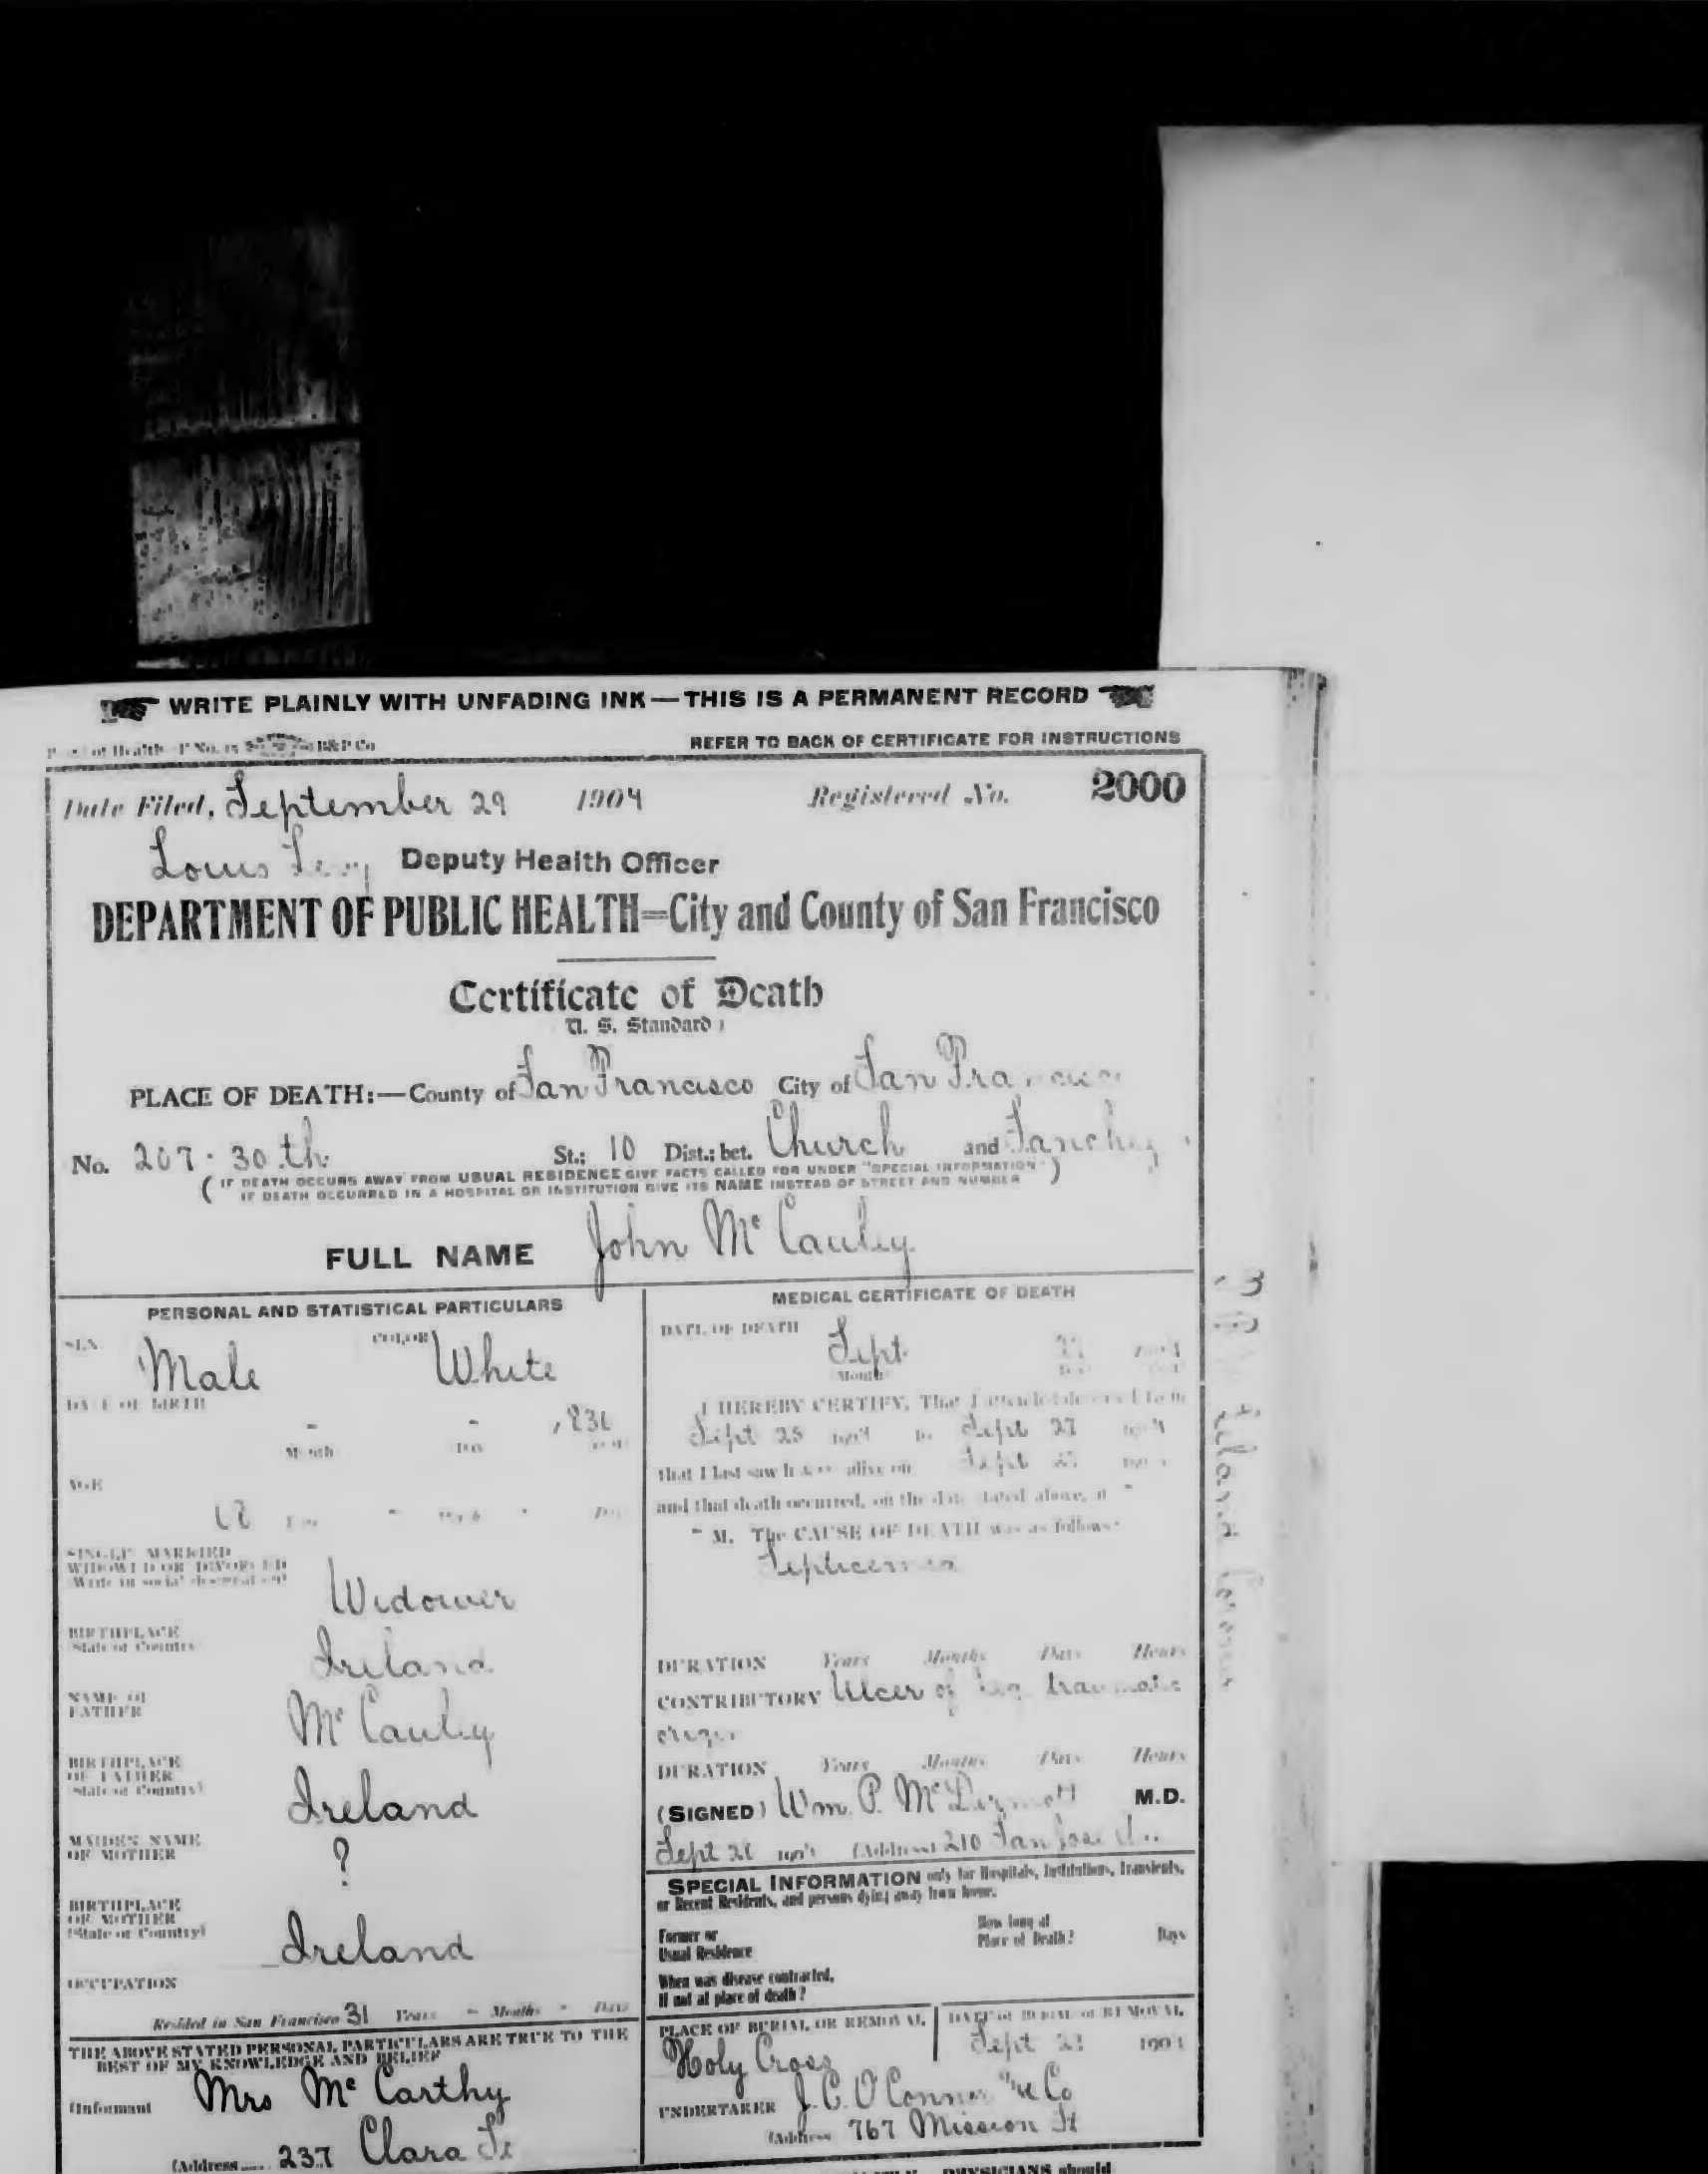 WRITE PLAINLY WITH UNFADING INK — THIS IS A PERMANENT RECORD
of Health B&P Co
REFER TO BACK OF CERTIFICATE FOR INSTRUCTIONS
Date Filed, September 29 1904 Registered No. 2000
Louis Deputy Health Officer
DEPARTMENT OF PUBLIC HEALTH=City and County of San Francisco
Certificate of Death
U. S. Standard
PLACE OF DEATH:—County of San Francisco City of San Francisco
No. 207 - 30th St.; 10 Dist.; bet. Church and Sanchez
( IF DEATH OCCURS AWAY FROM USUAL RESIDENCE GIVE FACTS CALLED FOR UNDER "SPECIAL INFORMATION" )
IF DEATH OCCURRED IN A HOSPITAL OR INSTITUTION GIVE ITS NAME INSTEAD OF STREET AND NUMBER
FULL NAME John Mc Cauley
PERSONAL AND STATISTICAL PARTICULARS
SEX Male COLOR White
DATE OF BIRTH
- -
Month Day
AGE
SINGLE MARRIED
WIDOWED OR DIVORCED
Write in social designation
Widower
BIRTHPLACE
State or Country
Ireland
NAME OF
FATHER
Mc Cauley
BIRTHPLACE
OF FATHER
State or Country)
Ireland
MAIDEN NAME
OF MOTHER
?
BIRTHPLACE
OF MOTHER
(State or Country)
Ireland
OCCUPATION
Resided in San Francisco 31 Years - Months - Days
THE ABOVE STATED PERSONAL PARTICULARS ARE TRUE TO THE
BEST OF MY KNOWLEDGE AND BELIEF
(Informant Mrs Mc Carthy
(Address..... 237 Clara St
MEDICAL CERTIFICATE OF DEATH
DATE OF DEATH
Sept
Month
I HEREBY CERTIFY, That I attended deceased from
Sept 25 to Sept 27
that I last saw h alive on Sept
and that death occurred, on the date stated above, at -
- M. The CAUSE OF DEATH was as follows:
Septicemia
DURATION Years Months Days Hours
CONTRIBUTORY Ulcer of leg traumatic
origin
DURATION Years Months Days Hours
(SIGNED) Wm. P. McDermott M.D.
Sept (Address) 210 San Jose
SPECIAL INFORMATION only for Hospitals, Institutions, Transients,
or Recent Residents, and persons dying away from home.
Former or
Usual Residence
How long at
Place of Death? Days
When was disease contracted,
If not at place of death?
PLACE OF BURIAL OR REMOVAL
Holy Cross
DATE of BURIAL or REMOVAL
Sept 190
UNDERTAKER J. C. O'Connor & Co
(Address 767 Mission St
PHYSICIANS should